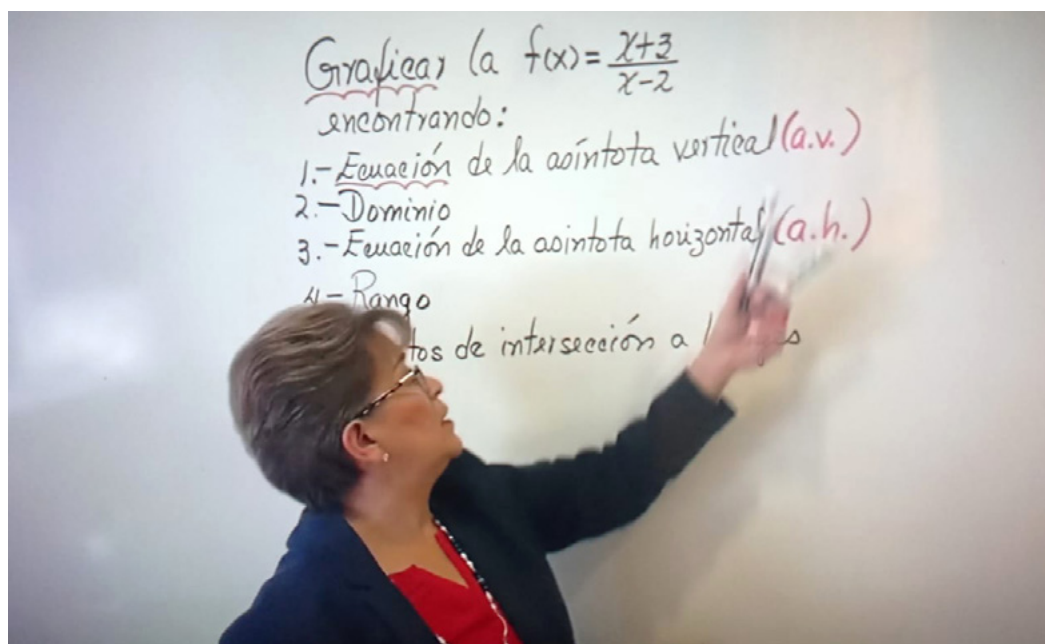 Graficar la f(x)=\frac{x+3}{x-2}
encontrando:
1.-Ecuación de la asíntota vertical (a.v.)
2.-Dominio
3.-Ecuación de la asintota horizontal (a.h.)
4-Rango
tos de intersección a